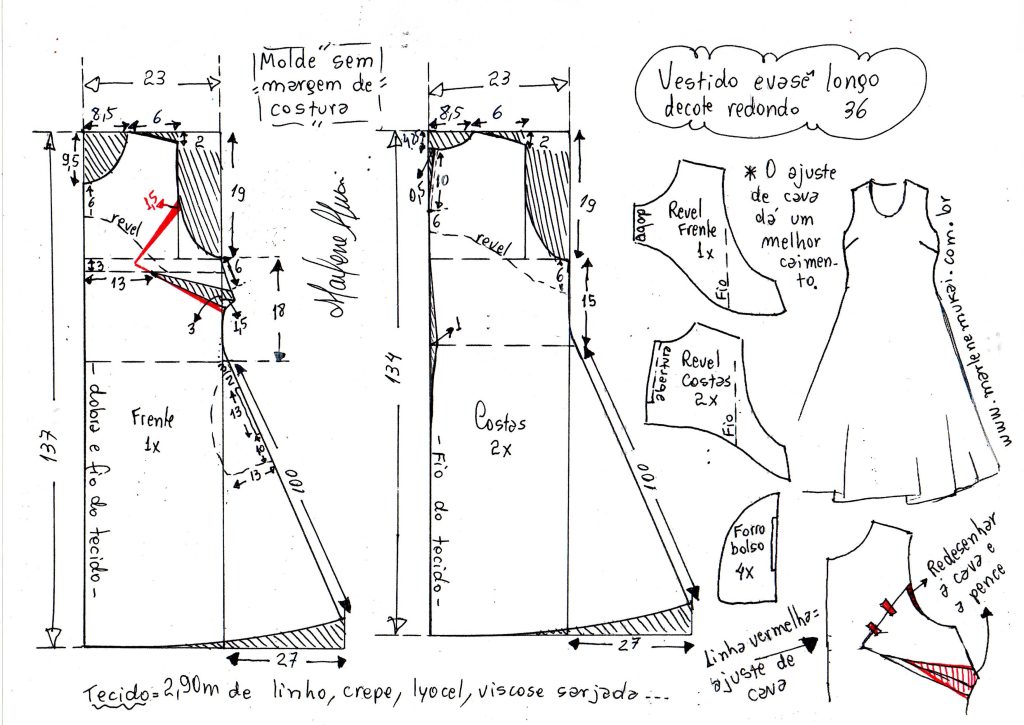 Molde sem
margem de
costura
Vestido evasê longo
decote redondo 36
23
8,5
6
2
9,5
6
1,5
revel
19
3
13
6
3
1,5
18
137
dobra e fio do tecido
Frente
1x
13
10
13
100
27
23
8,5
6
2
0,5
10
6
revel
19
6
15
1
134
Fio do tecido
Costas
2x
100
27
dobra
Revel
Frente
1x
Fio
* O ajuste
de cava
dá um
melhor
caimen-
to.
abertura
Revel
Costas
2x
Fio
www.marlenemukai.com.br
Forro
bolso
4x
Redesenhar
a cava e
a pence
Linha vermelha=
ajuste de
cava
Tecido=2,90m de linho, crepe, lyocel, viscose sarjada...